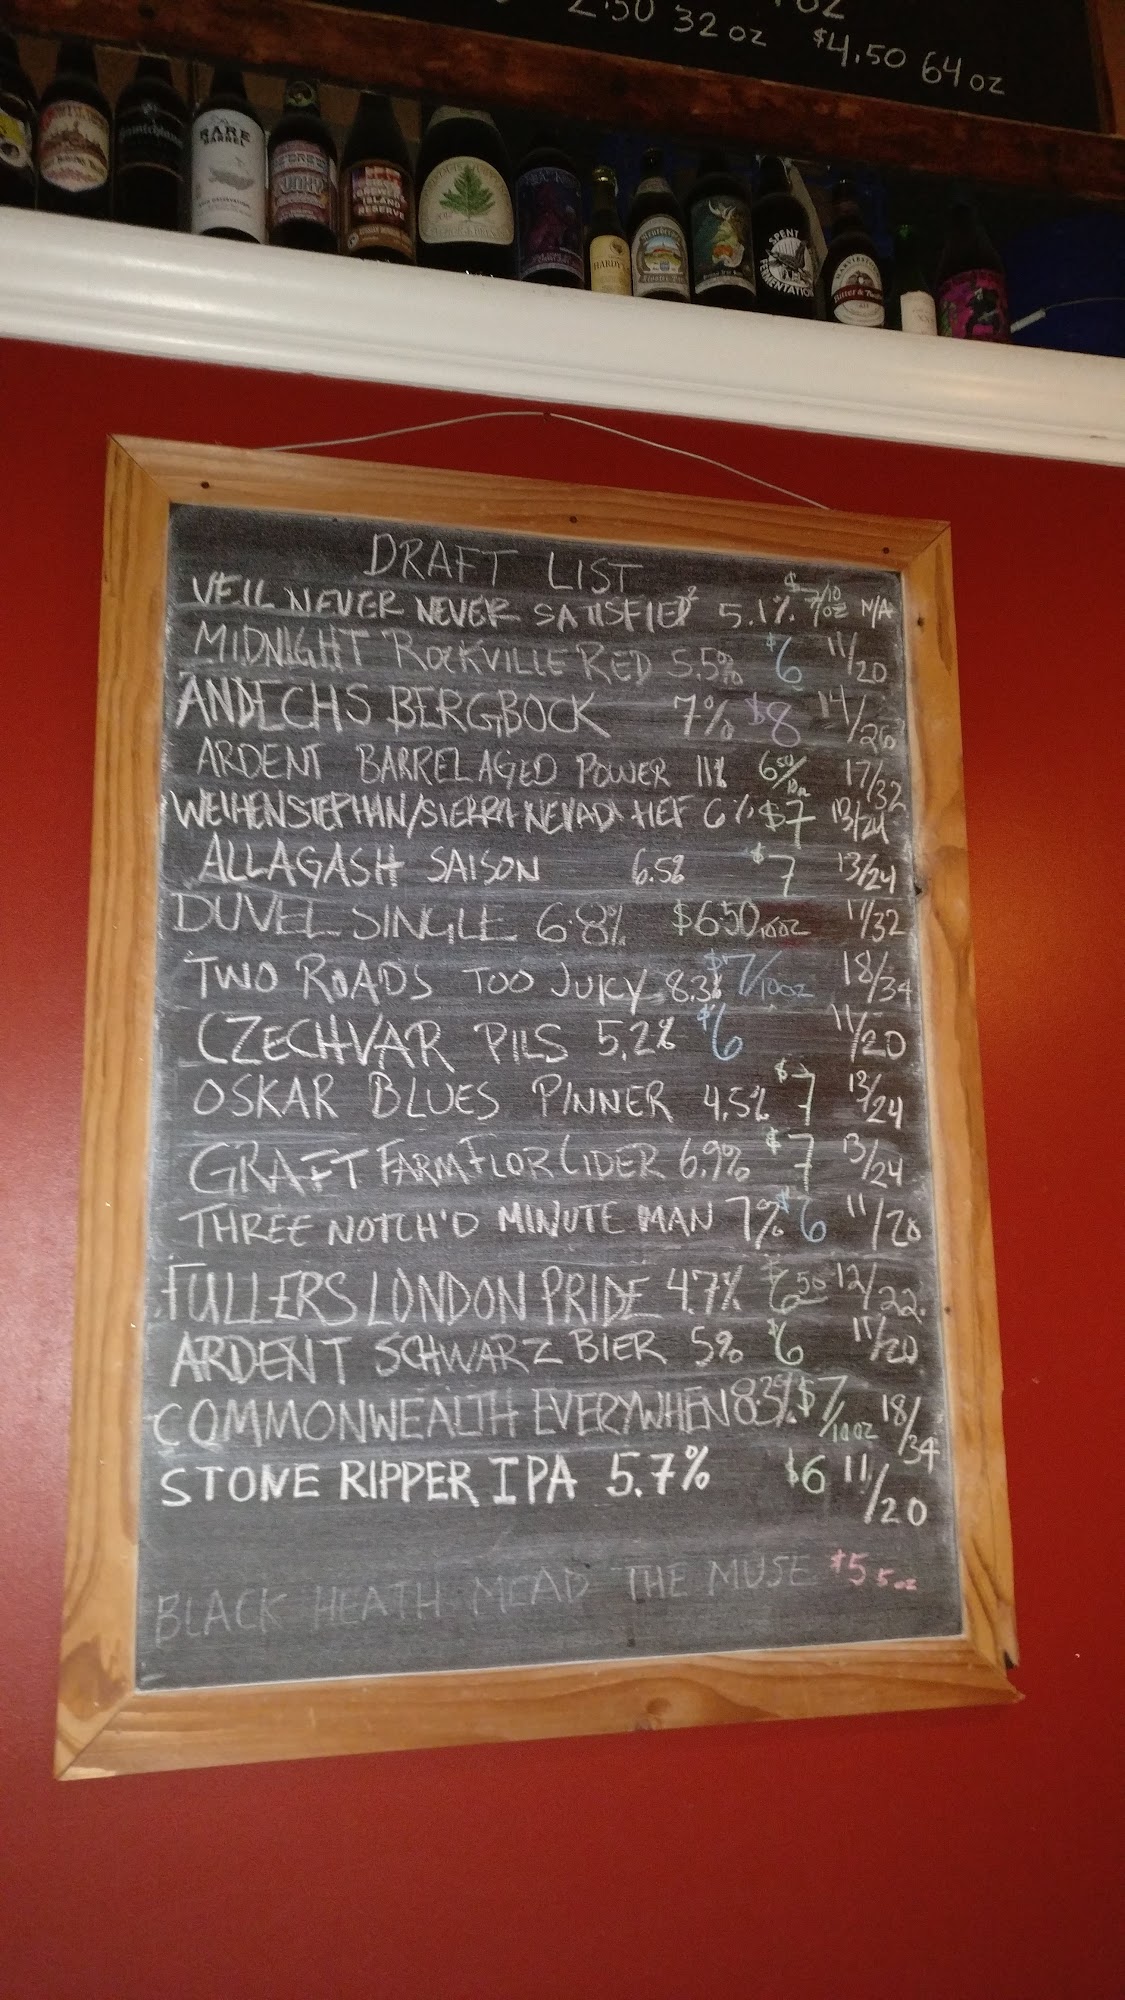 2.50 32 oz $4.50 64 oz
RARE
BARREL
ISLAND
RESERVE
HARDY
SPENT
FERMENTATION
DRAFT LIST
VEIL NEVER NEVER SATISFIED² 5.1% $7/10 oz N/A
MIDNIGHT ROCKVILLE RED 5.5% $6 11/20
ANDECHS BERGBOCK 7% $8 14/26
ARDENT BARREL AGED POWER 11% 6⁵⁰/10oz 17/32
WEIHENSTEPHAN/SIERRA NEVADA HEF 6% $7 13/24
ALLAGASH SAISON 6.5% $7 13/24
DUVEL SINGLE 6.8% $6.50 10oz 17/32
TWO ROADS TOO JUICY 8.3% $7/10oz 18/34
CZECHVAR PILS 5.2% $6 11/20
OSKAR BLUES PINNER 4.5% $7 13/24
GRAFT FARM FLOR CIDER 6.9% $7 13/24
THREE NOTCH'D MINUTE MAN 7% $6 11/20
FULLERS LONDON PRIDE 4.7% $6 50 12/22
ARDENT SCHWARZ BIER 5% $6 11/20
COMMONWEALTH EVERYWHEN 8.3% $7/10oz 18/34
STONE RIPPER IPA 5.7% $6 11/20
BLACK HEATH MEAD THE MUSE $5 5oz